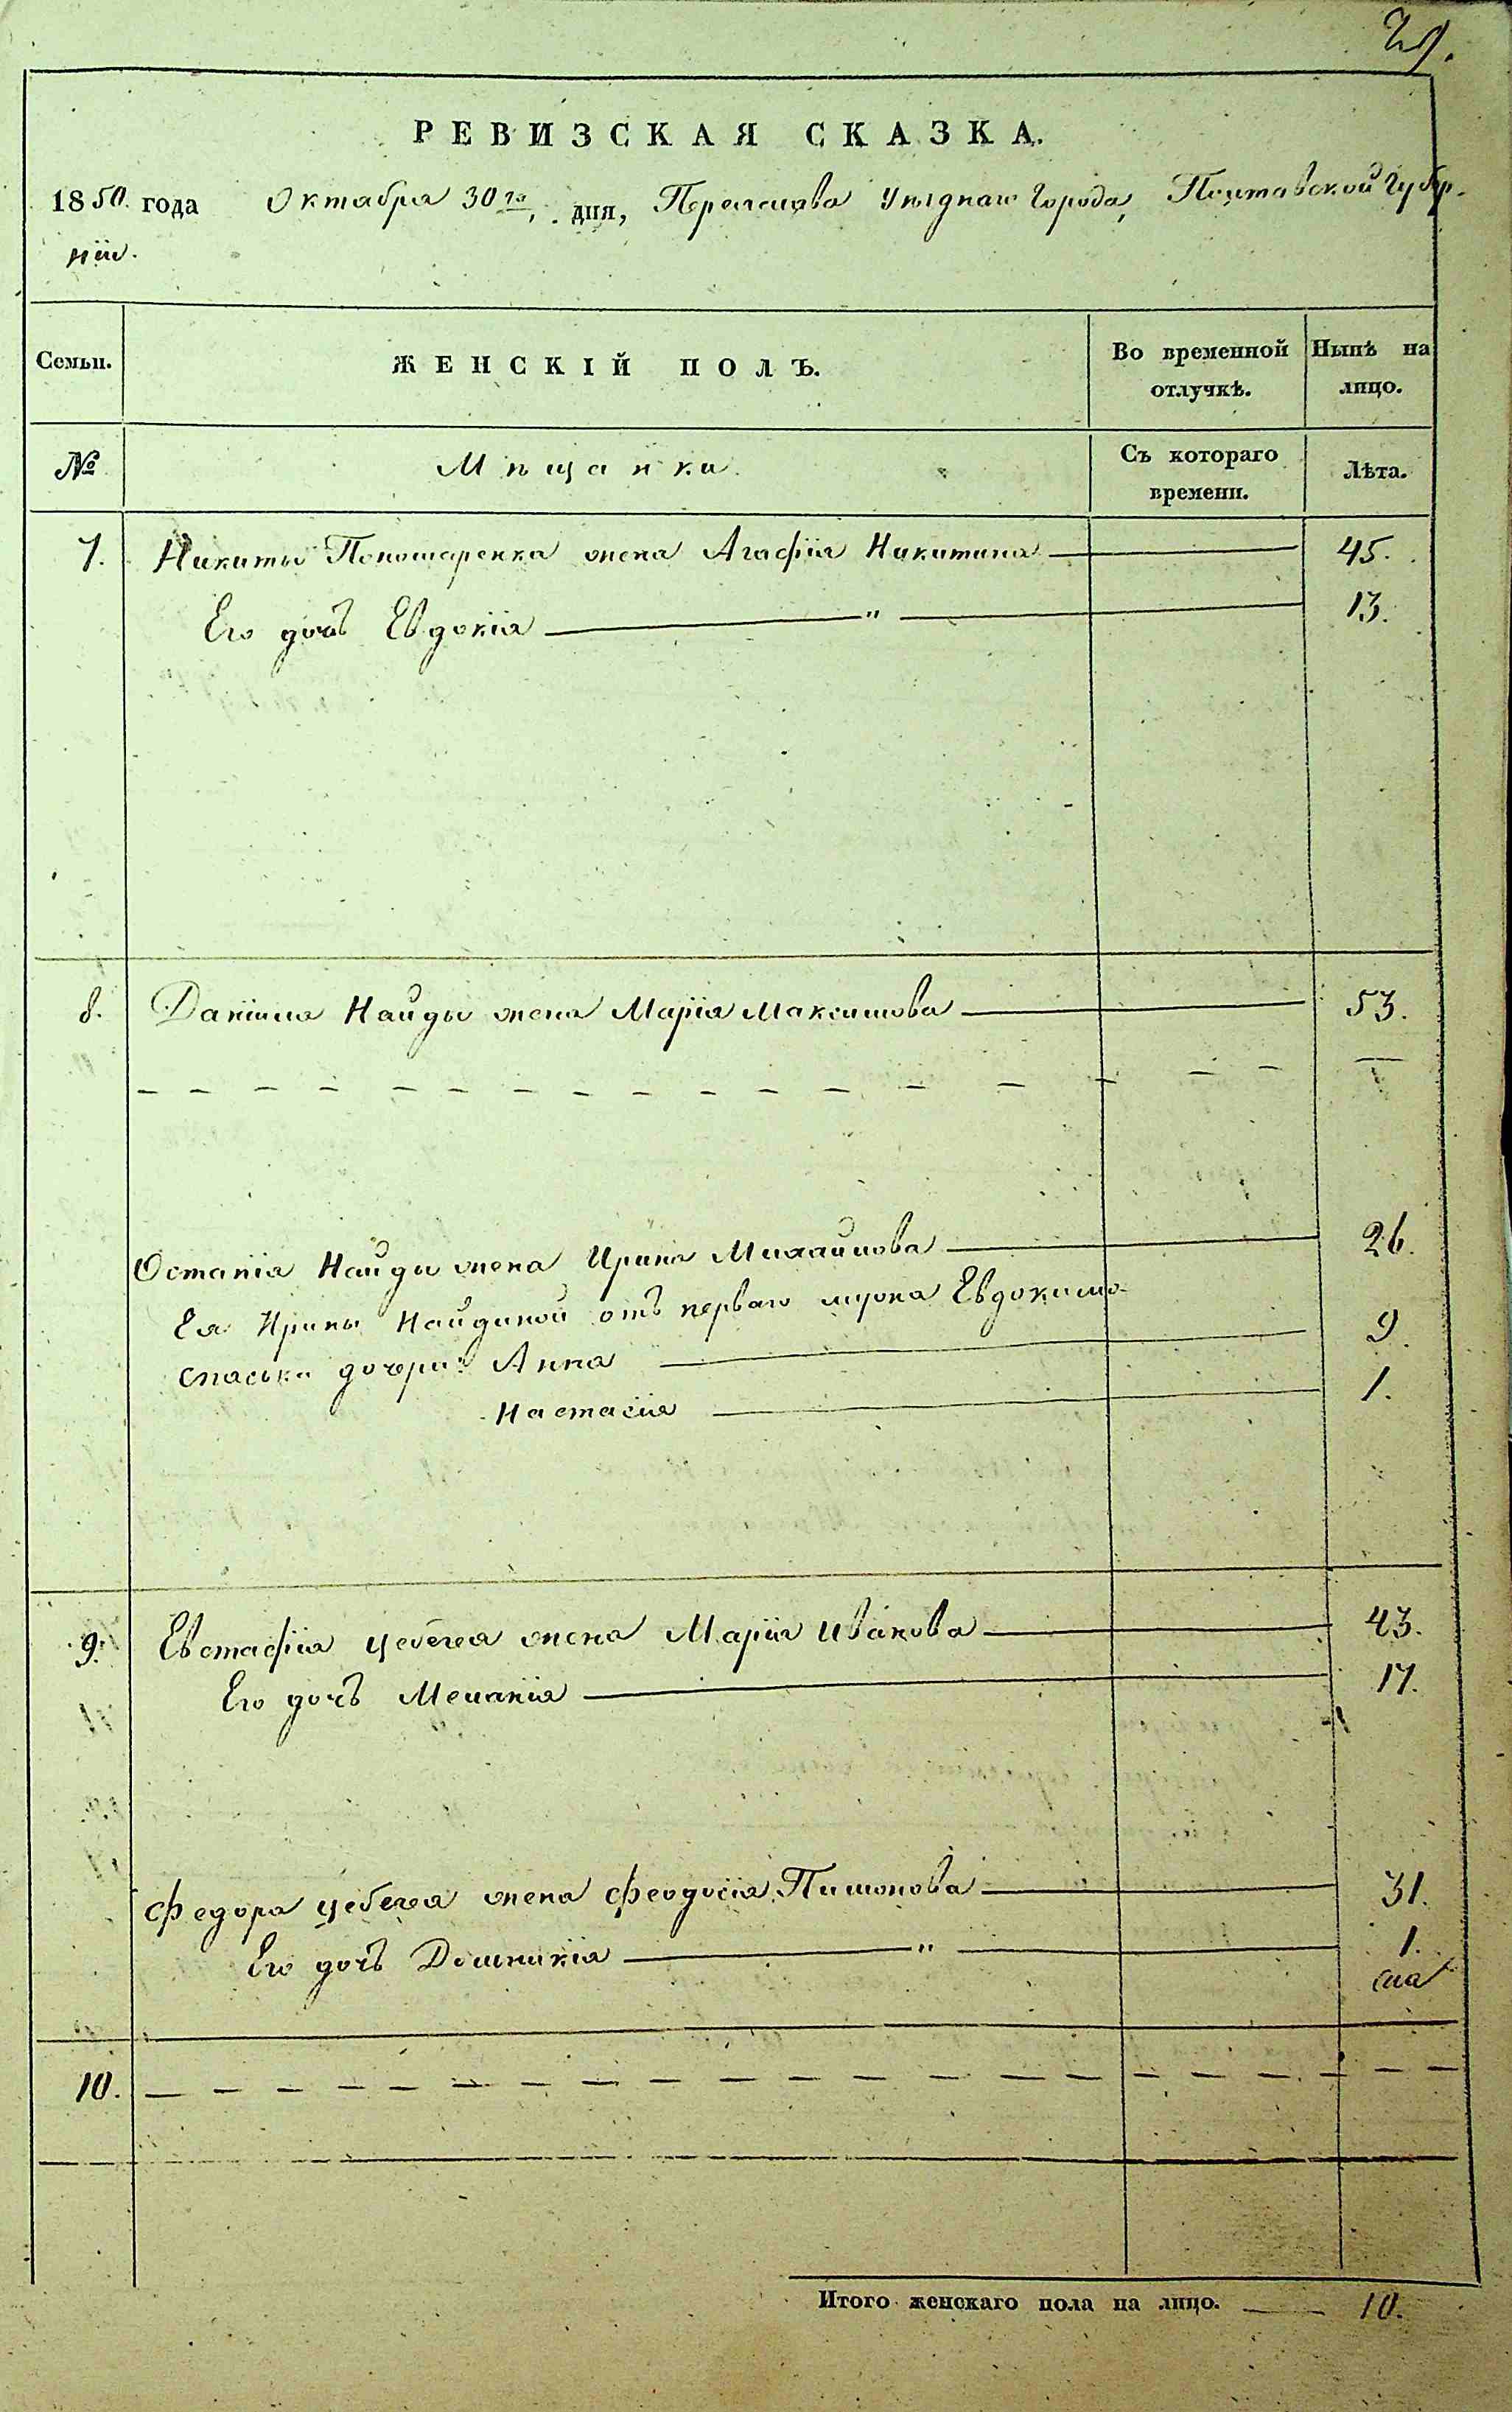 РЕВИЗСКАЯ СКАЗКА.
1850. года Октабря 30го. дня, Переяслава Уѣзднаго Города, Полтавской Губер-
ніи.
Семьи. ЖЕНСКІЙ ПОЛЪ. Во временной отлучкѣ. Нынѣ на лицо.
№ Мѣщанки Съ котораго времени. Лѣта.
7. Никиты Пономаренка жена Агафія Никитина 45.
Его дочь Евдокія " 13.
8. Даніила Найды жена Марія Максимова 53.
Остапія Найды жена Ирина Михайлова 26.
Ея Ирины Найдиной отъ перваго мужа Евдокима
Спаська дочери: Анна 9.
Настасія 1.
9. Евстафія Цебегея жена Марія Иванова 43.
Его дочь Меланія 17.
Федора Цебегея жена Феодосія Пимонова 31.
Его дочь Домникія " 1.
10.
Итого женскаго пола на лицо. 10.